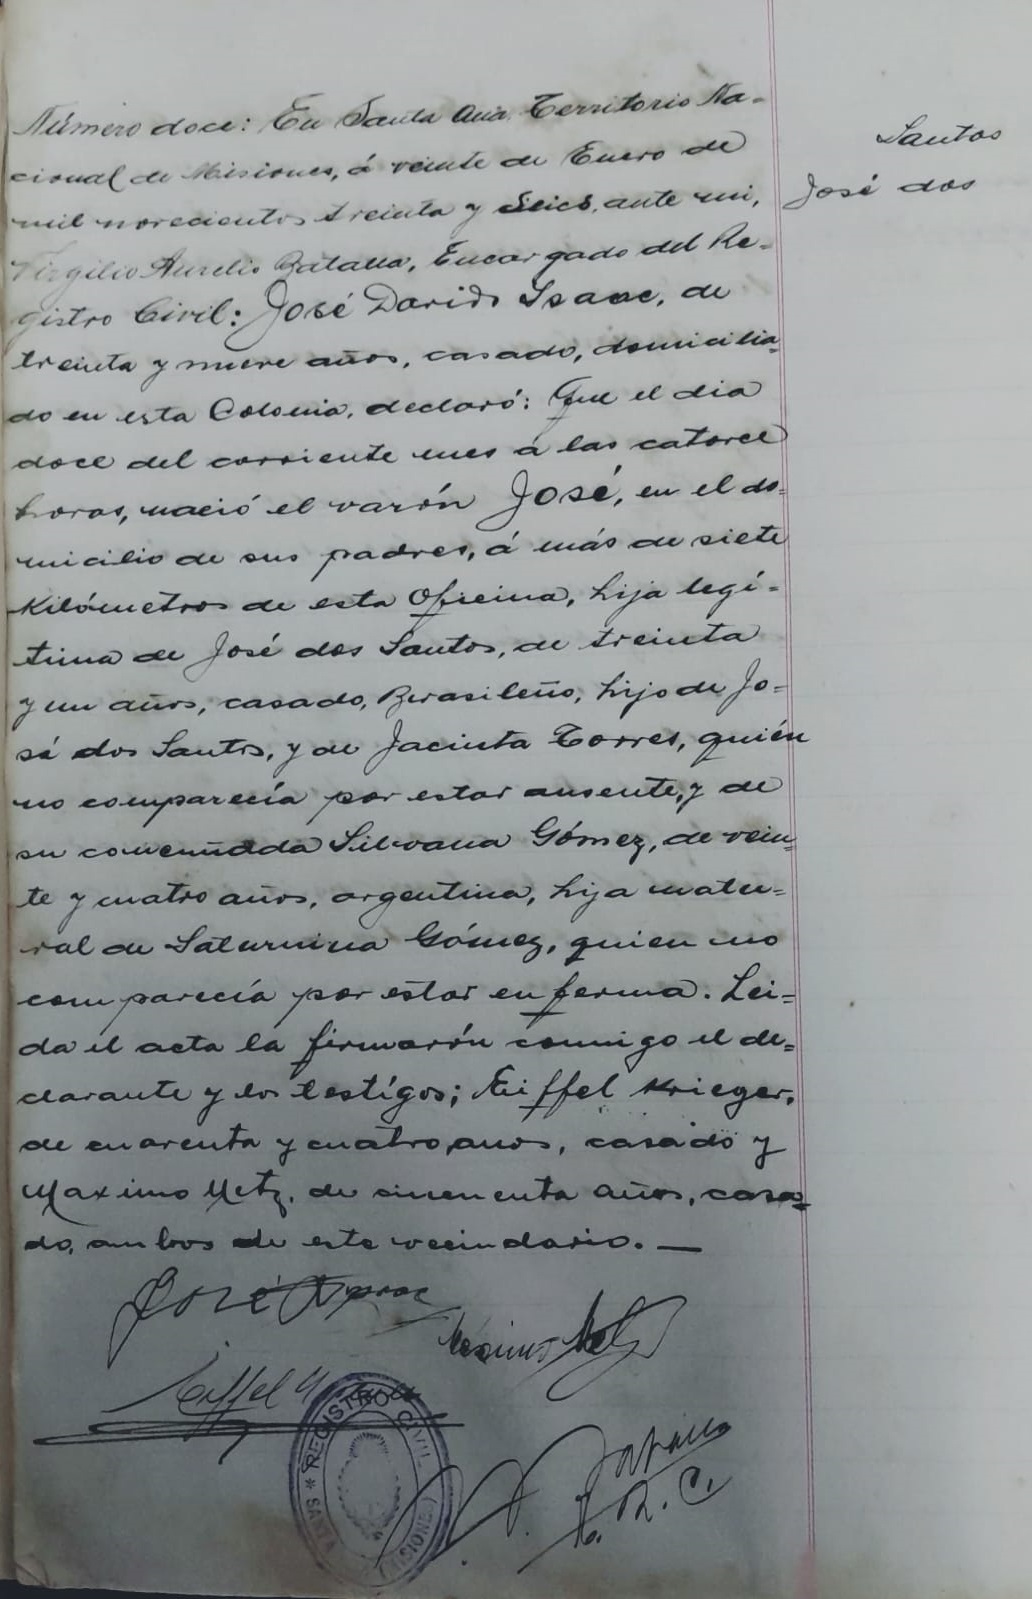 Santos
José dos
Número doce: En Santa Ana, Territorio Na-
cional de Misiones, á veinte de Enero de
mil novecientos treinta y seis, ante mi,
Virgilio Aurelio Batalla, Encargado del Re-
gistro Civil: José David Isaac, de
treinta y nueve años, casado, domicilia-
do en esta Colonia, declaró: Que el dia
doce del corriente mes á las catorce
horas, nació el varón José, en el do-
micilio de sus padres, á más de siete
Kilómetros de esta Oficina, hija legí-
tima de José dos Santos, de treinta
y un años, casado, Brasileño, hijo de Jo-
sé dos Santos, y de Jacinta Torres, quién
no comparecía por estar ausente, y de
su Silvana Gómez, de vein-
te y cuatro años, argentina, hija natu-
ral de Saturnina Gómez, quien no
comparecía por estar enferma. Lei=
da el acta la firmarón conmigo el de=
clarante y los testígos; Eiffel Krieger,
de cuarenta y cuatro anos, casado y
Maximo Metz, de cincuenta años, casa=
do, ambos de este vecindario. —
José
Maximo Metz
Eiffel
REGISTRO CIVIL
* SANTA (MISIONES)
Batalla
E. R. C.